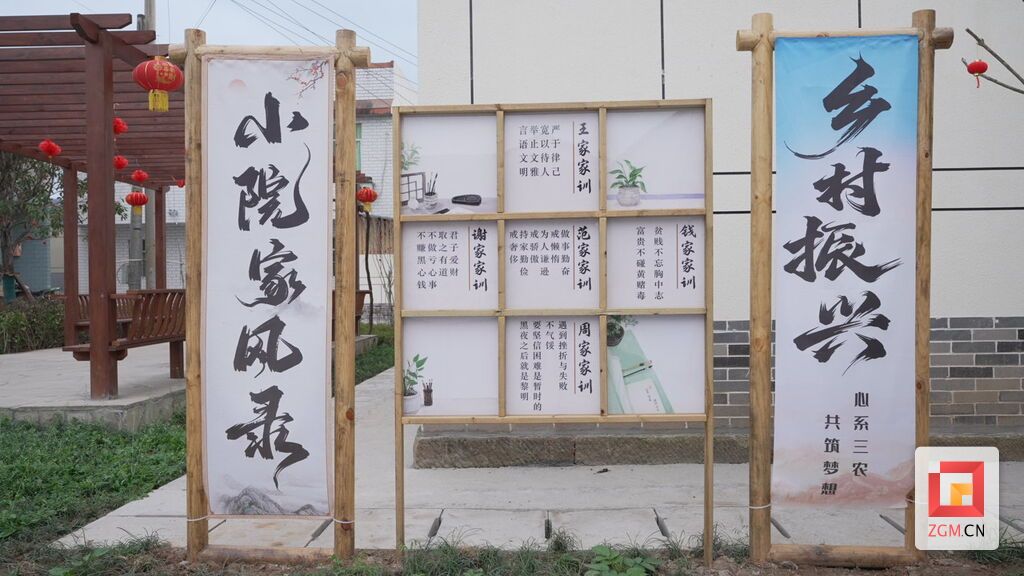 小院家风录
王家家训
严于律己
宽以待人
举止文雅
言语文明
谢家家训
君子爱财
取之有道
不做亏心事
不赚黑心钱
范家家训
做事勤奋
戒懒惰
为人谦逊
戒骄傲
持家勤俭
戒奢侈
钱家家训
贫贱不忘胸中志
富贵不碰黄赌毒
周家家训
遇到挫折与失败
不气馁
要坚信困难是暂时的
黑夜之后就是黎明
乡村振兴
心系三农
共筑梦想
ZGM.CN